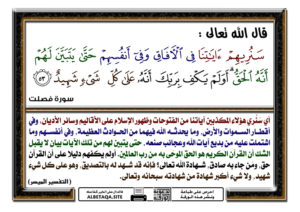 قال الله تعالى :
سَنُرِيهِمْ ءَايَٰتِنَا فِي الْآفَاقِ وَفِي أَنفُسِهِمْ حَتَّىٰ يَتَبَيَّنَ لَهُمْ
أَنَّهُ الْحَقُّ أَوَلَمْ يَكْفِ بِرَبِّكَ أَنَّهُ عَلَىٰ كُلِّ شَيْءٍ شَهِيدٌ ٥٣
سورة فصلت
أي سنُري هؤلاء المكذبين آياتنا من الفتوحات وظهور الإسلام على الأقاليم وسائر الأديان، وفي
أقطار السموات والأرض، وما يحدثه الله فيهما من الحوادث العظيمة، وفي أنفسهم وما
اشتملت عليه من بديع آيات الله وعجائب صنعه، حتى يتبين لهم من تلك الآيات بيان لا يقبل
الشك أن القرآن الكريم هو الحق الموحى به من رب العالمين. أولم يكفهم دليلا على أن القرآن
حق، ومن جاء به صادق، شهادة الله تعالى؟ فإنه قد شهد له بالتصديق، وهو على كل شيء
شهيد، ولا شيء أكبر شهادة من شهادته سبحانه وتعالى.
(التفسير الميسر)
ALBETAQA.SITE